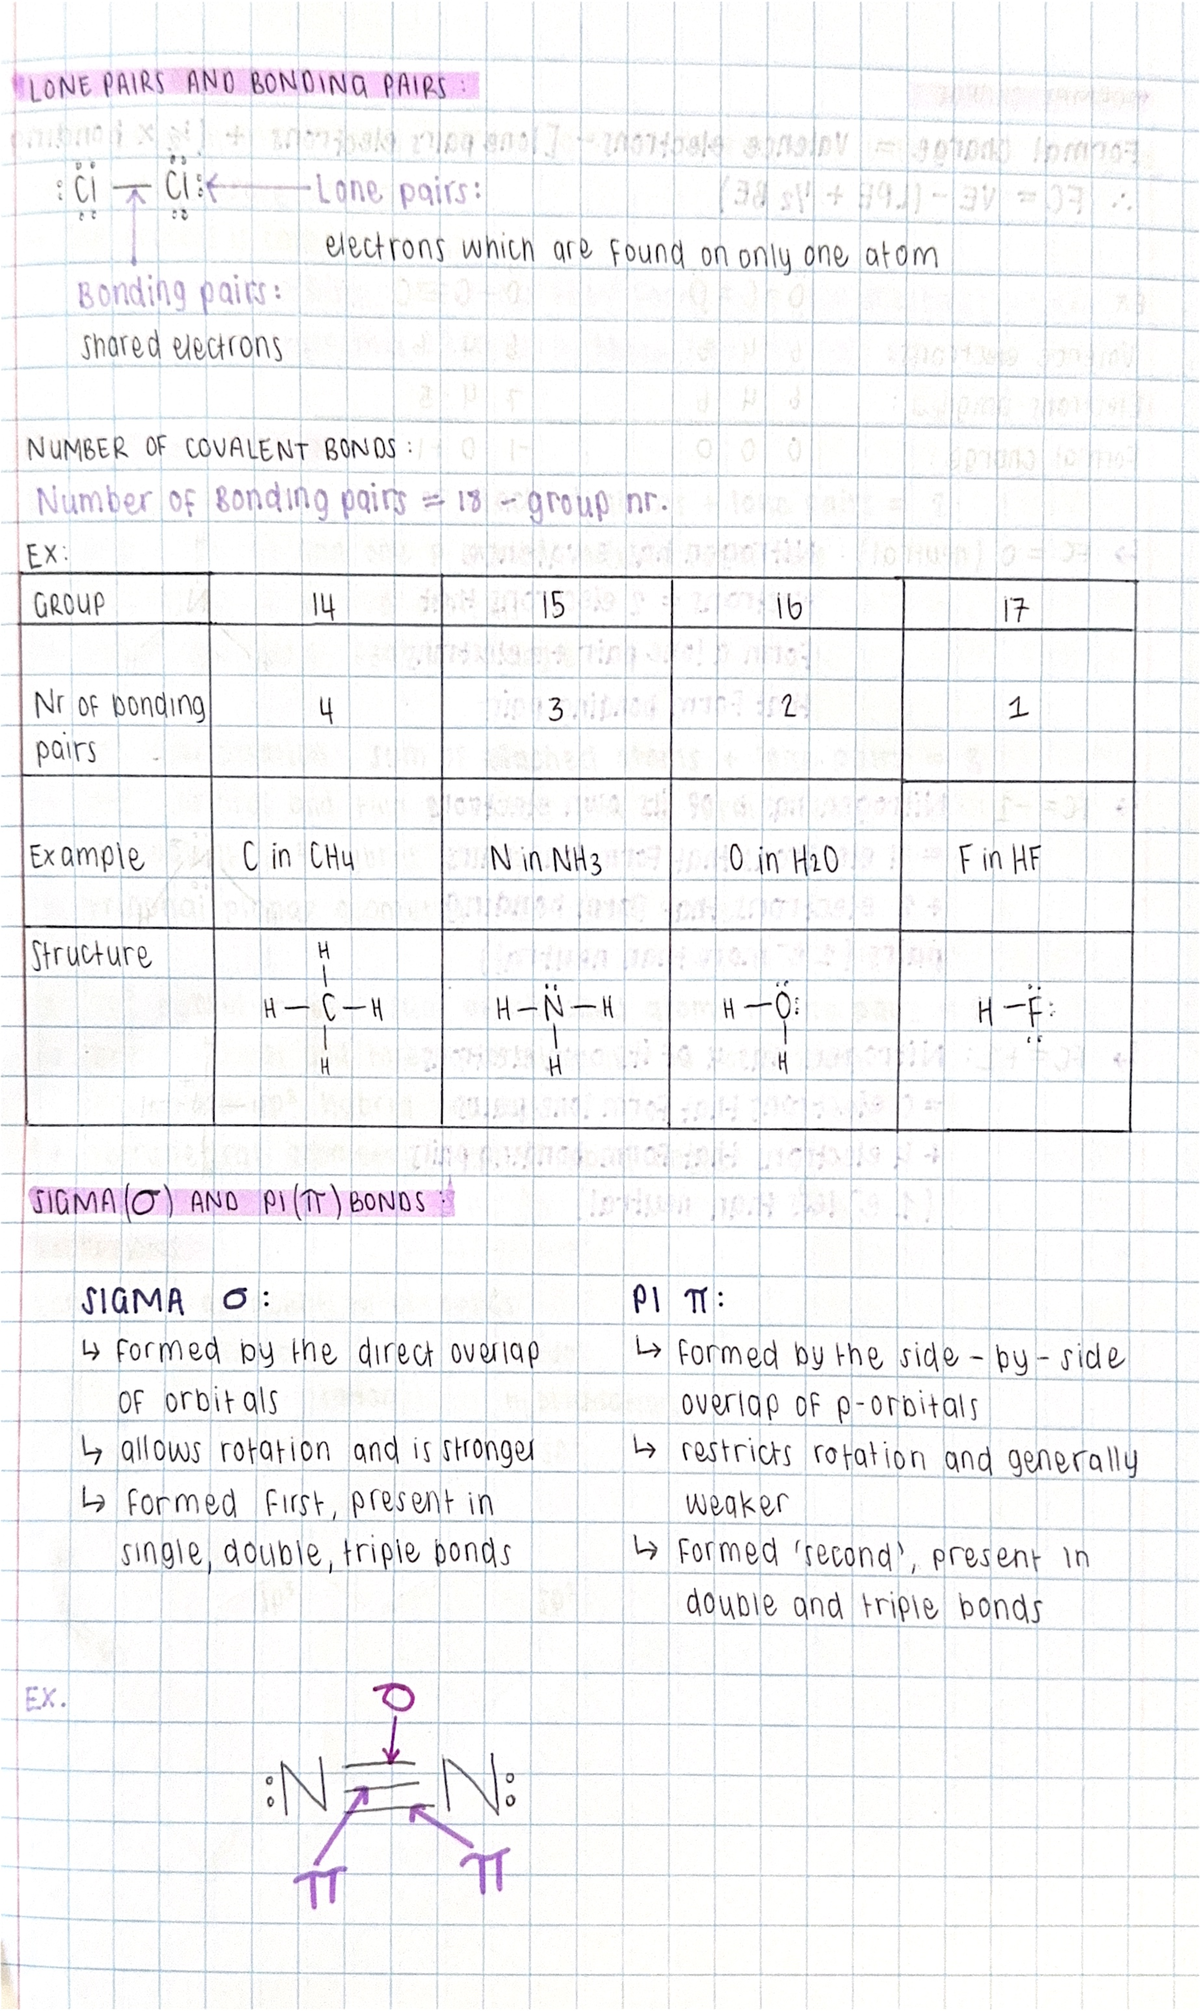 LONE PAIRS AND BONDING PAIRS:
:Cl — Cl: Lone pairs:
electrons which are found on only one atom
Bonding pairs:
shared electrons
NUMBER OF COVALENT BONDS:
Number of Bonding pairs = 18 - group nr.
EX:
GROUP 14 15 16 17
Nr of bonding pairs 4 3 2 1
Example C in CH4 N in NH3 O in H2O F in HF
Structure
H
H—C—H H—N—H H—O: H—F:
H H H
SIGMA (σ) AND PI (π) BONDS:
SIGMA σ:
↳ formed by the direct overlap
of orbitals
↳ allows rotation and is stronger
↳ formed first, present in
single, double, triple bonds
PI π:
↳ formed by the side-by-side
overlap of p-orbitals
↳ restricts rotation and generally
weaker
↳ Formed 'second', present in
double and triple bonds
EX.
σ
:N≡N:
π π